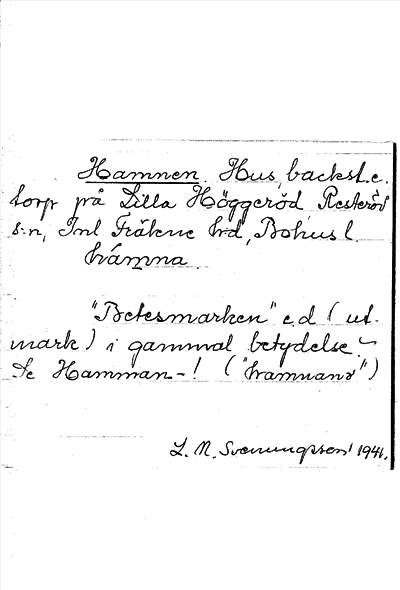 Hamnen. Hus, backst. e.
torp på Lilla Höggeröd, Resteröd
s:n, Inl Fräkne hrd, Bohus l.
hámna
"Betesmarken" e.d (ut-
mark) i gammal betydelse.
Se Hamman-! ("hamnanr")
L. M. Svenungsson 1941.